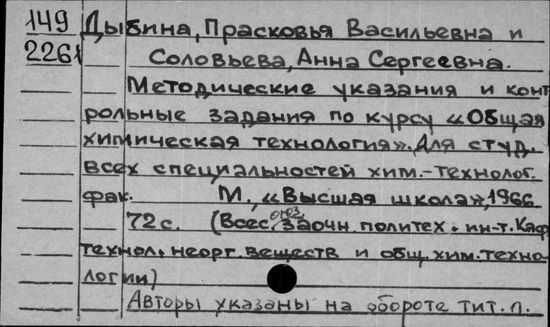 149 Дыбина, Прасковья Васильевна и
226 Соловьева, Анна Сергеевна.
Методические указания и конт
рольные задания по курсу «Общая
химическая технология». Для студ.
всех специальностей хим.-технолог.
фак. М., «Высшая школа», 1966
72 с. (Всесоюз. заочн. политех. ин-т. Каф
технол. неорг. веществ и общ. хим. техно
логии)
Авторы указаны на обороте тит. л.